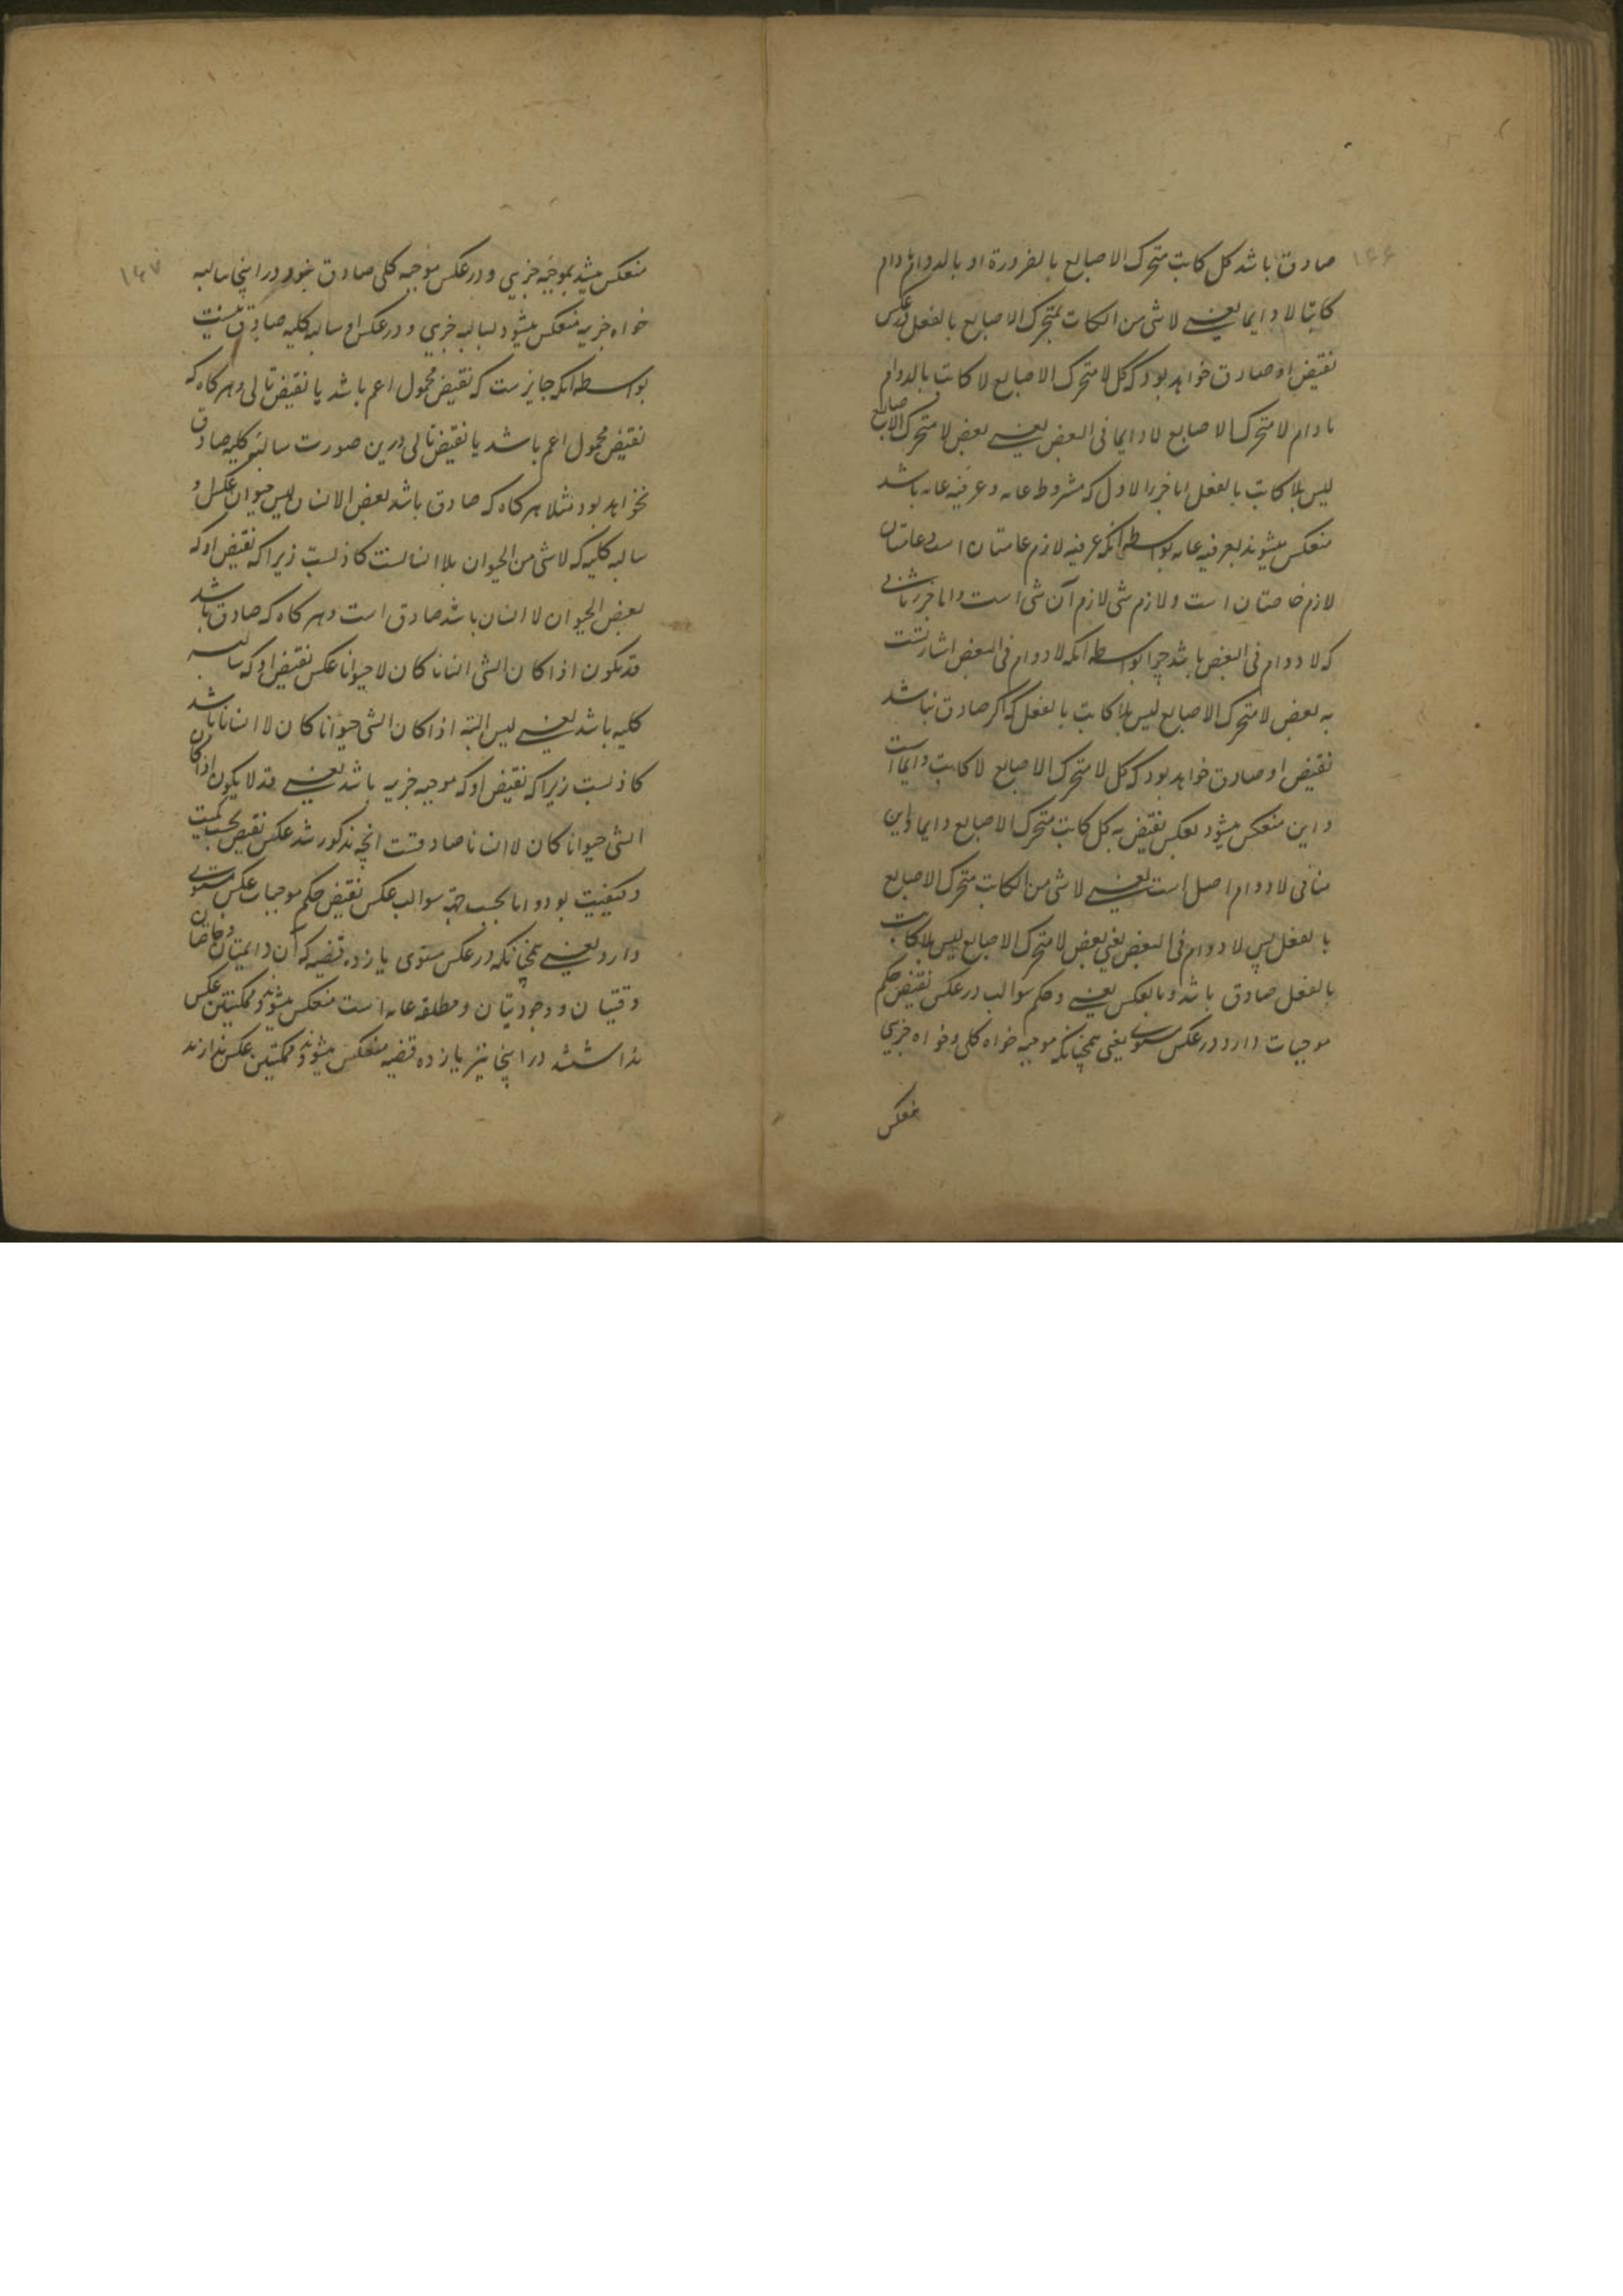 ۱۴۶
صادق باشد کل کاتب متحرک الاصابع بالضرورة او بالدوام مادام
کاتبا لا دایما یعنے لا شی من الکاتب بمتحرک الاصابع بالفعل عکس
نقیض او صادق خواهد بود که کل لا متحرک الاصابع لا کاتب بالدوام
مادام لا متحرک الاصابع لا دایما فی البعض یعنے بعض لا متحرک الاصابع
لیس بلا کاتب بالفعل اما جزء الاول که مشروطه عامه و عرفیه عامه باشد
منعکس میشوند بعرفیه عامه بواسطه آنکه عرفیه لازم عامتان است و عامتان
لازم خاصتان است و لازم شی لازم آن شی است و اما جزء ثانی
که لا دوام فی البعض باشد چرا بواسطه آنکه لا دوام فی البعض اشارتست
به بعض لا متحرک الاصابع لیس بلا کاتب بالفعل که اگر صادق نباشد
نقیض او صادق خواهد بود که کل لا متحرک الاصابع لا کاتب دایما است
و این منعکس میشود بعکس نقیض به کل کاتب متحرک الاصابع دایما و این
منافی لا دوام اصل است یعنے لا شی من الکاتب متحرک الاصابع
بالفعل پس لا دوام فی البعض یعنی بعض لا متحرک الاصابع لیس بلا کاتب
بالفعل صادق باشد و بالعکس یعنے و حکم سوالب در عکس نقیض حکم
موجبات دارد در عکس مستوی یعنی همچنانکه موجبه خواه کلی و خواه جزیی
منعکس
۱۴۷
منعکس میشد بموجبه جزیی و در عکس موجبه کلی صادق نبود در اینجا سالبه
خواه جزیه منعکس میشود بسالبه جزیی و در عکس او سالبه کلیه صادق نیست
بواسطه آنکه جایزست که نقیض محمول اعم باشد یا نقیض تالی و هر کاه که
نقیض محمول اعم باشد یا نقیض تالی درین صورت سالبه کلیه صادق
نخواهد بود مثلا هر کاه که صادق باشد بعض الانسان لیس حیوان عکس او
سالبه کلیه که لا شی من الحیوان بلا انسانست کاذبست زیرا که نقیض او که
بعض الحیوان لا انسان باشد صادق است و هر کاه که صادق باشد
قد یکون اذا کان الشی انسانا کان لا حیوانا عکس نقیض او که سالبه
کلیه باشد یعنے لیس البته اذا کان الشی حیوانا کان لا انسانا باشد
کاذبست زیرا که نقیض او که موجبه جزیه باشد یعنے قد لا یکون اذا کان
الشی حیوانا کان لا انسانا صادقست انچه مذکور شد عکس نقیض بحسب کمیت
و کیفیت بود و اما بحسب جهة سوالب عکس نقیض حکم موجبات عکس مستوی
دارد یعنے همچنانکه در عکس مستوی یازده قضیه که آن دایمتان و خاصتان
وقتیان و وجودیتان و مطلقه عامه است منعکس میشوند و ممکنتین عکس
نداشتند در اینجا نیز یازده قضیه منعکس میشوند و ممکنتین عکس ندارند